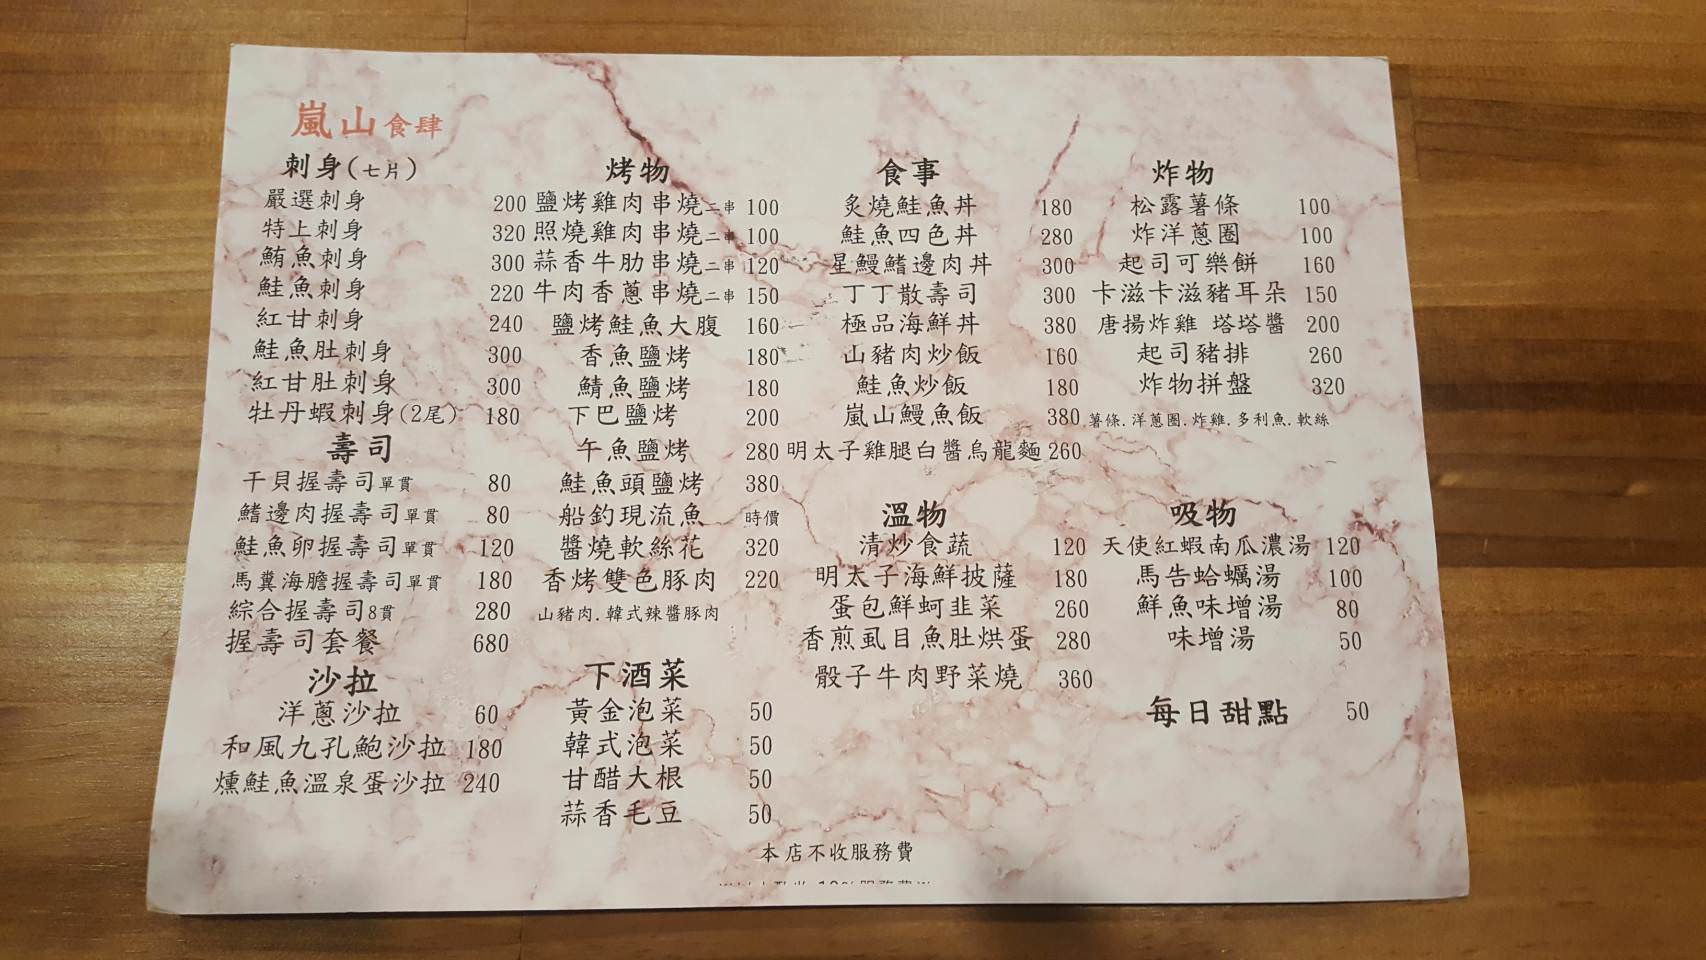 嵐山食肆
刺身(七片)
嚴選刺身 200
特上刺身 320
鮪魚刺身 300
鮭魚刺身 220
紅甘刺身 240
鮭魚肚刺身 300
紅甘肚刺身 300
牡丹蝦刺身(2尾) 180
壽司
干貝握壽司單貫 80
鰭邊肉握壽司單貫 80
鮭魚卵握壽司單貫 120
馬糞海膽握壽司單貫 180
綜合握壽司8貫 280
握壽司套餐 680
沙拉
洋蔥沙拉 60
和風九孔鮑沙拉 180
燻鮭魚溫泉蛋沙拉 240
烤物
鹽烤雞肉串燒二串 100
照燒雞肉串燒二串 100
蒜香牛肋串燒二串 120
牛肉香蔥串燒二串 150
鹽烤鮭魚大腹 160
香魚鹽烤 180
鯖魚鹽烤 180
下巴鹽烤 200
午魚鹽烤 280
鮭魚頭鹽烤 380
船釣現流魚 時價
醬燒軟絲花 320
香烤雙色豚肉 220
山豬肉.韓式辣醬豚肉
下酒菜
黃金泡菜 50
韓式泡菜 50
甘醋大根 50
蒜香毛豆 50
食事
炙燒鮭魚丼 180
鮭魚四色丼 280
星鰻鰭邊肉丼 300
丁丁散壽司 300
極品海鮮丼 380
山豬肉炒飯 160
鮭魚炒飯 180
嵐山鰻魚飯 380
明太子雞腿白醬烏龍麵 260
溫物
清炒食蔬 120
明太子海鮮披薩 180
蛋包鮮蚵韭菜 260
香煎虱目魚肚烘蛋 280
骰子牛肉野菜燒 360
炸物
松露薯條 100
炸洋蔥圈 100
起司可樂餅 160
卡滋卡滋豬耳朵 150
唐揚炸雞 塔塔醬 200
起司豬排 260
炸物拼盤 320
薯條.洋蔥圈.炸雞.多利魚.軟絲
吸物
天使紅蝦南瓜濃湯 120
馬告蛤蠣湯 100
鮮魚味增湯 80
味增湯 50
每日甜點 50
本店不收服務費